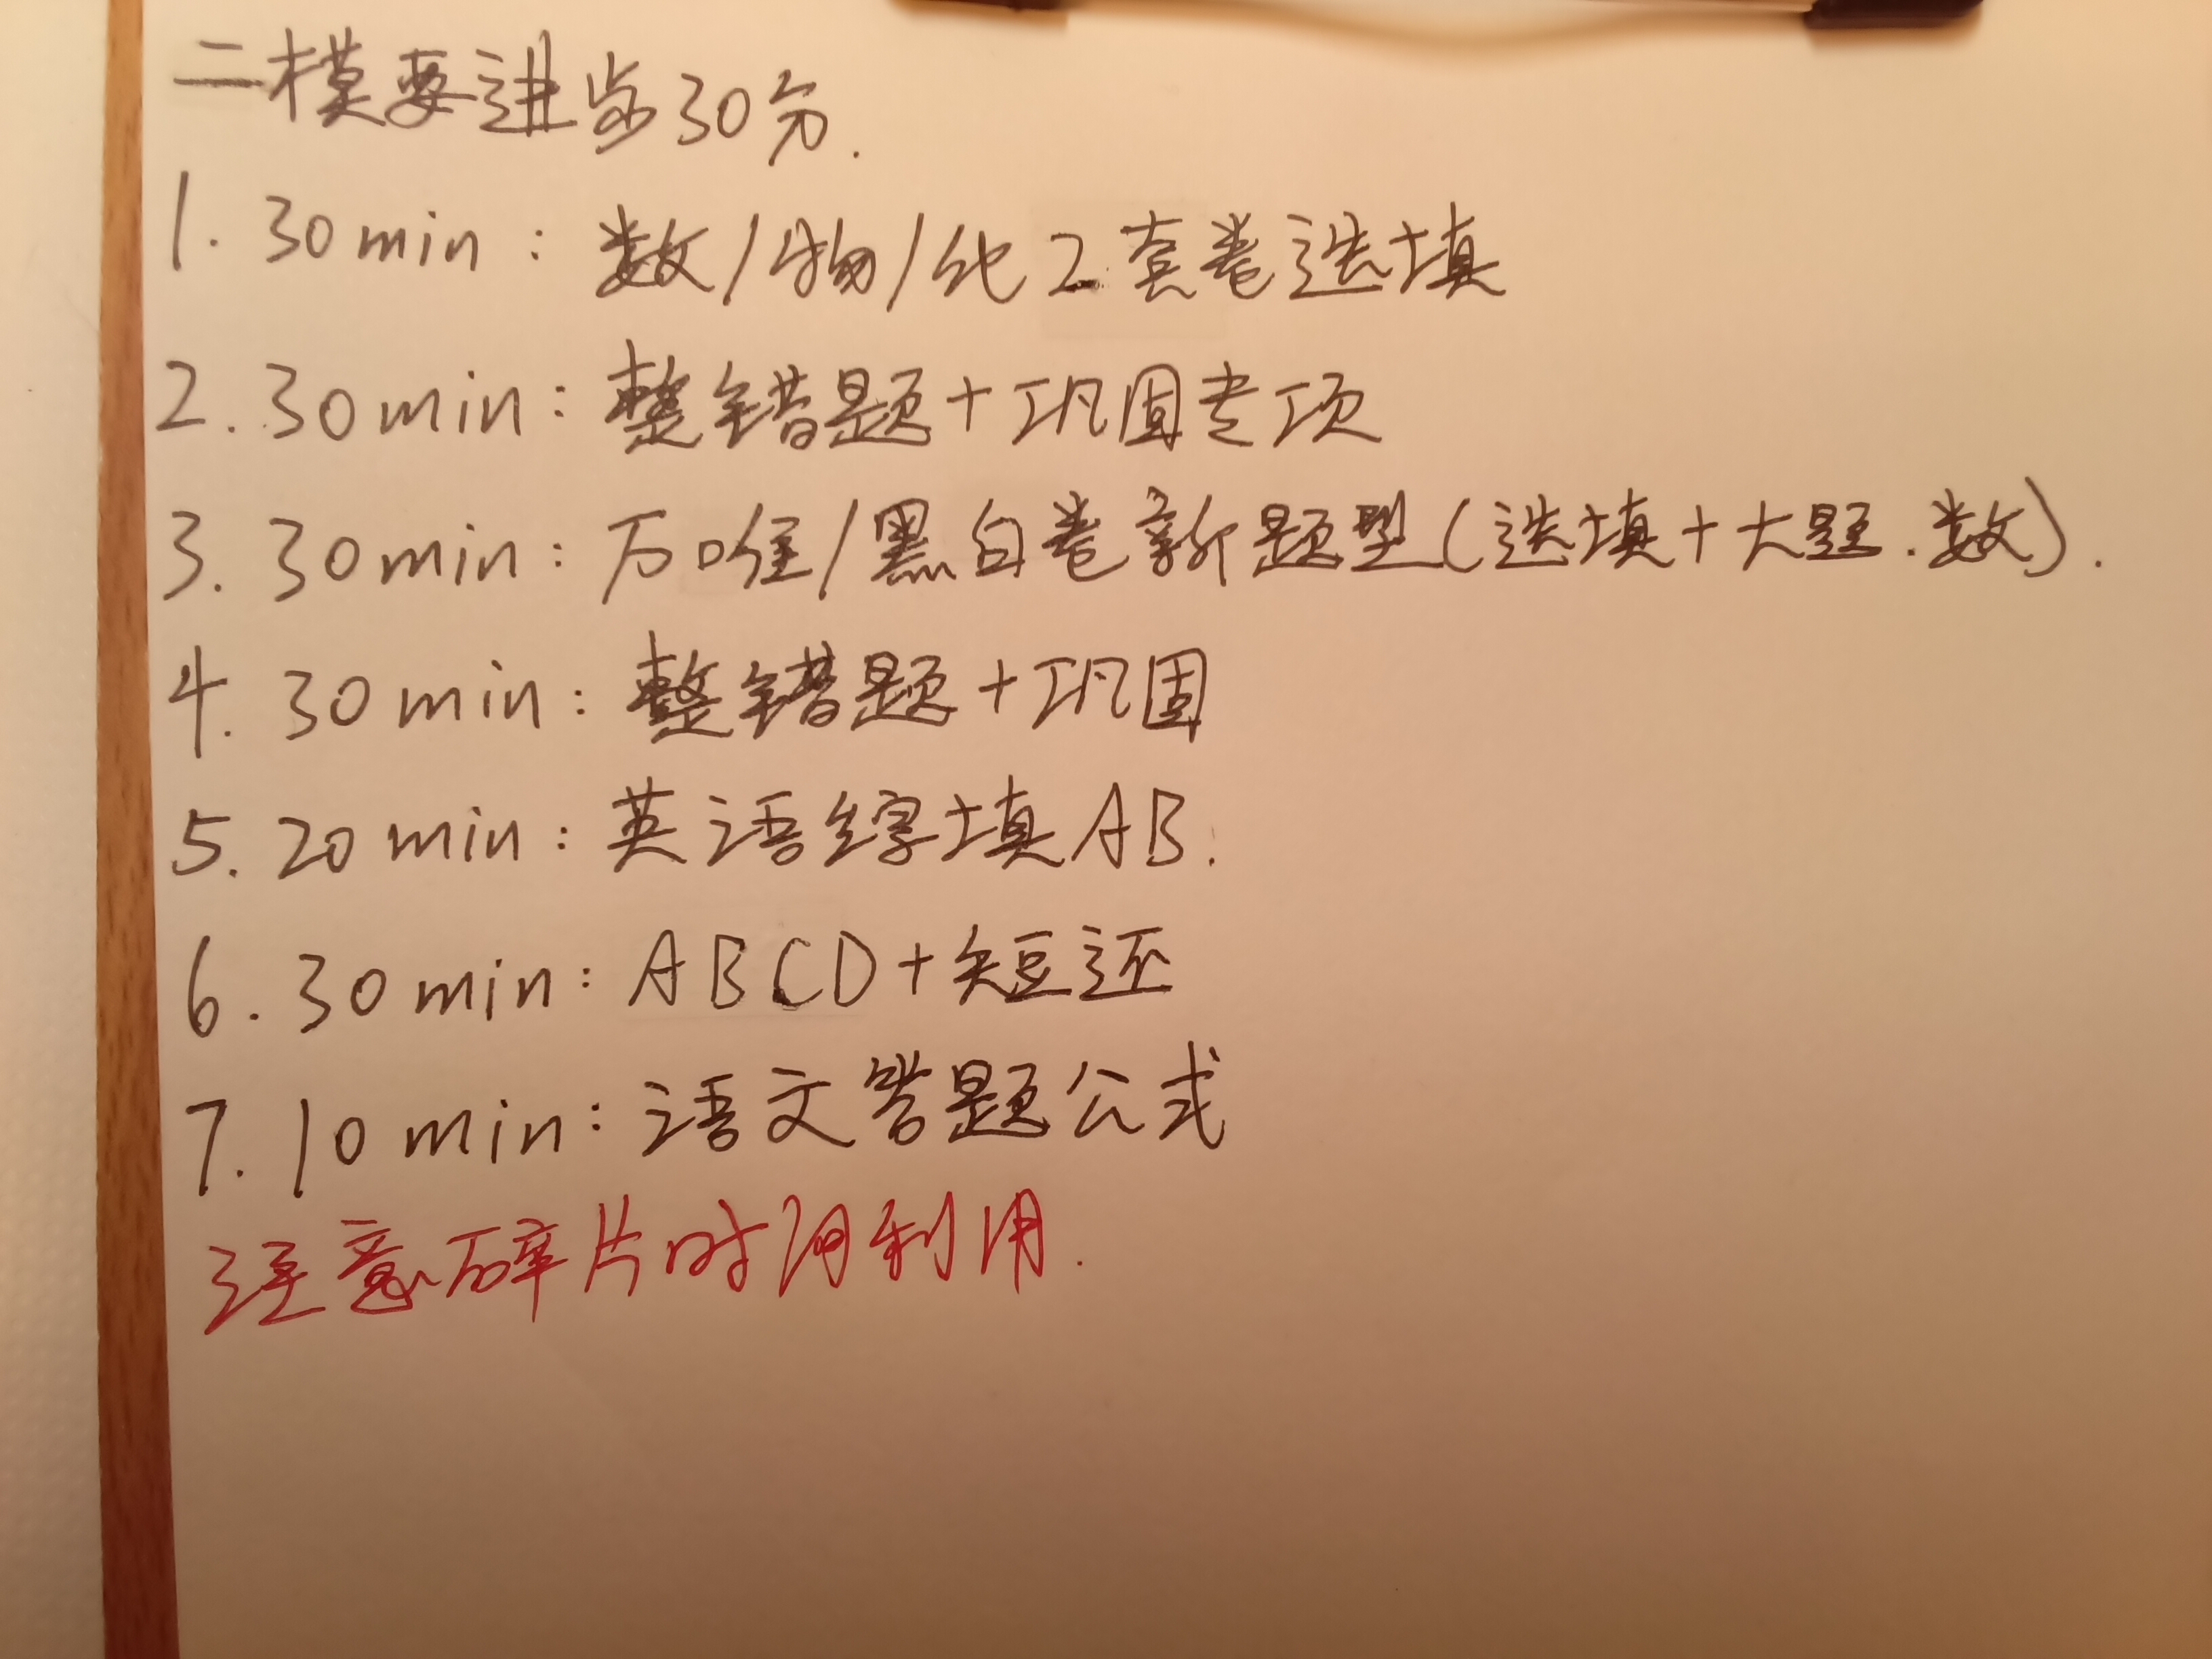 二模要进步30分.
1. 30min：数/物/化2套卷选填
2. 30min：整错题+巩固专项
3. 30min：万唯/黑白卷新题型(选填+大题.数).
4. 30min：整错题+巩固
5. 20min：英语综填AB.
6. 30min：ABCD+短还
7. 10min：语文答题公式
注意碎片时间利用.